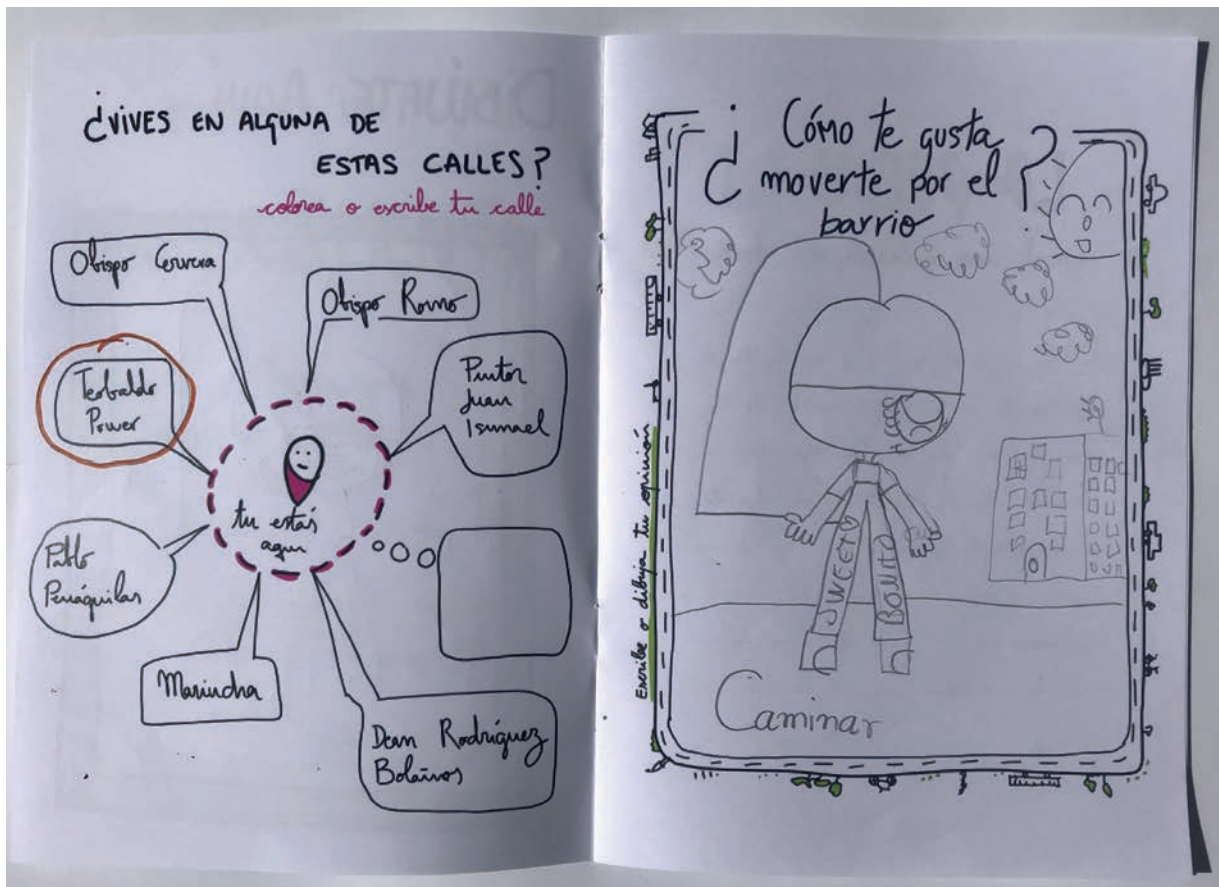 ¿VIVES EN ALGUNA DE
ESTAS CALLES?
colorea o escribe tu calle
Obispo Cervera
Obispo Romo
Teobaldo
Power
Pintor
Juan
Ismael
tu estás
aquí
Pablo
Penáguilas
Marucha
Dean Rodríguez
Bolaños
¿Cómo te gusta
moverte por el?
barrio
Escribe o dibuja tu opinión
SWEETY
BONITO
Caminar